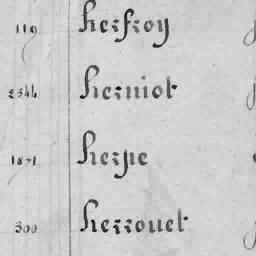 119 Herfroy
2544 Herniot
1871 Herpe
300 Herrouet